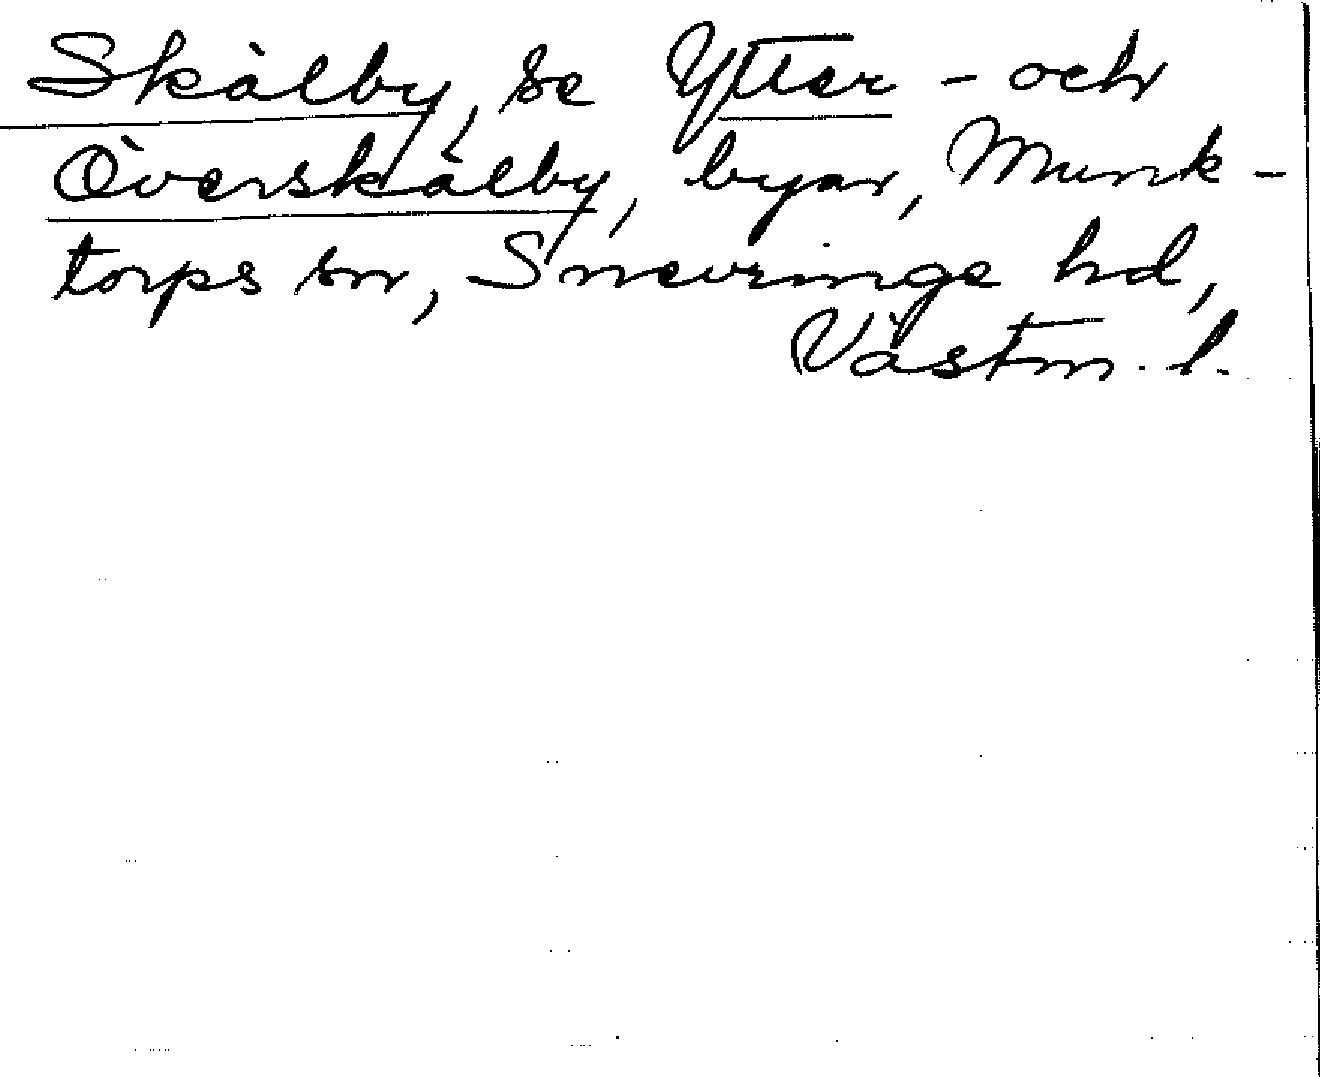 Skålby, se Ytter- och
Överskålby, byar, Munk-
torps sn, Snevringe hd,
Västm. l.